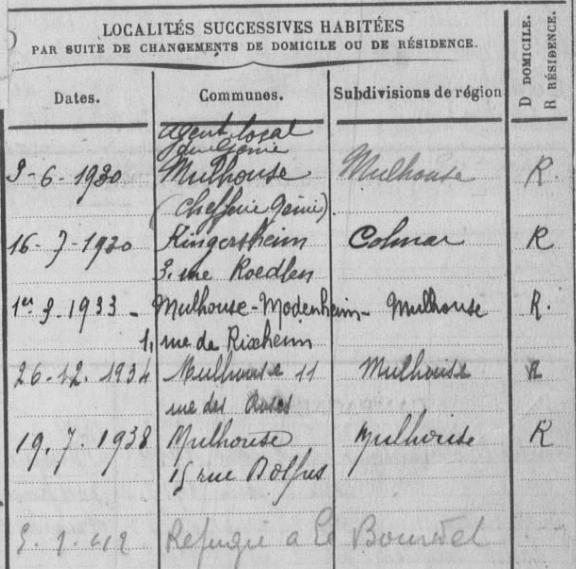 LOCALITÉS SUCCESSIVES HABITÉES
PAR SUITE DE CHANGEMENTS DE DOMICILE OU DE RÉSIDENCE.
D DOMICILE.
R RÉSIDENCE.
Dates. Communes. Subdivisions de région
agent local
du Génie
3-6-1930 Mulhouse Mulhouse R.
(Chefferie Génie)
16-7-1930 Kingersheim Colmar R
3, rue Roedlen
1er 3. 1933 - Mulhouse-Modenheim- Mulhouse R.
1, rue de Rixheim
26-12. 1934 Mulhouse 11 Mulhouse R
rue des Roses
19. 7. 1938 Mulhouse Mulhouse R
15 rue Dolfus
Refugié a Le Bourdet